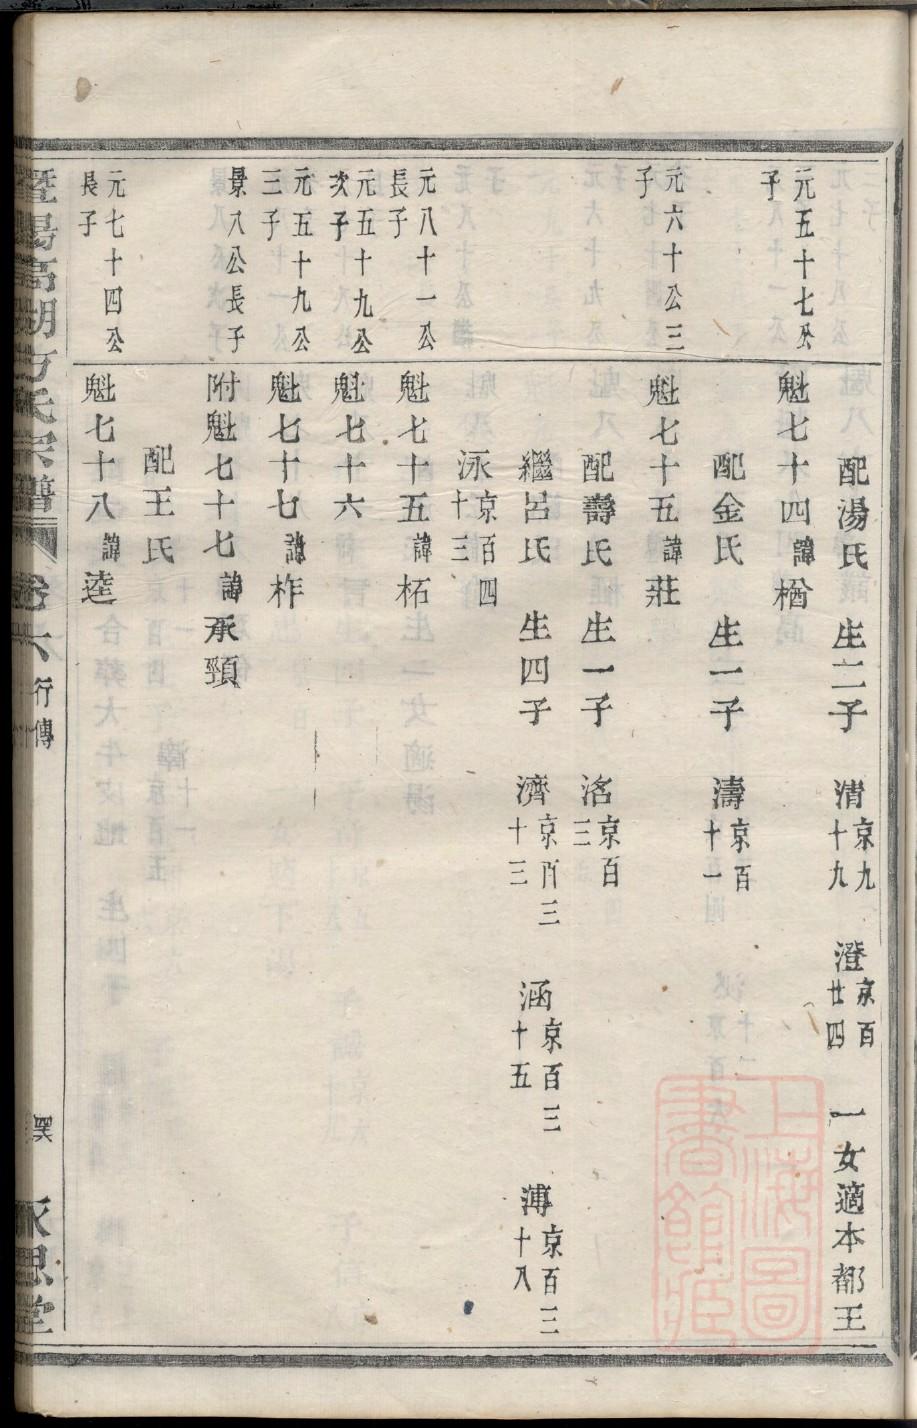 配湯氏 生二子 清京九十九 澄京百廿四 一女適本都王
元五十七公子 魁七十四諱楢
配金氏 生一子 濤京百十一
元六十公三子 魁七十五諱莊
配壽氏 生一子 洺京百三
繼呂氏 生四子 濟京百三十三 涵京百三十五 溥京百三十八
泳京百四十三
元八十一公長子 魁七十五諱柘
元五十九公次子 魁七十六
元五十九公三子 魁七十七諱柞
景八公長子 附魁七十七諱承頸
配王氏
元七十四公長子 魁七十八諱逵
暨陽高湖方氏宗譜 卷六 行傳
永思堂
上海圖書館藏